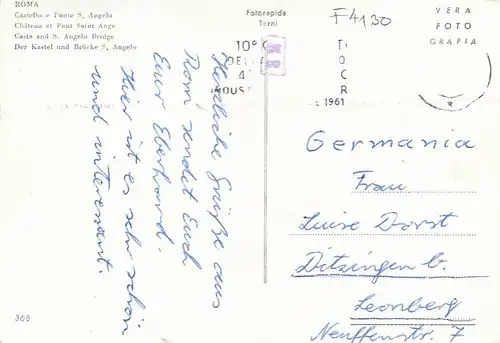 ROMA
Castello e Ponte S. Angelo
Château et Pont Saint Ange
Caste and S. Angelo Bridge
Der Kastel und Brücke S. Angelo
Fotorapida
Terni
F4130
VERA
FOTO
GRAFIA
10°
1961
Herzliche Grüße aus
Rom sendet Euch
Euer Eberhard.
Hier ist es sehr schön
und interessant.
Germania
Frau
Luise Dorst
Ditzingen b.
Leonberg
Neuffenstr. 7
368